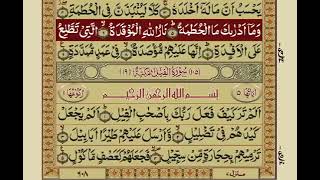 يَحْسَبُ أَنَّ مَالَهٗٓ أَخْلَدَهٗ ۝ كَلَّا لَيُنْۢبَذَنَّ فِي الْحُطَمَةِ ۝
وَمَآ أَدْرٰىكَ مَا الْحُطَمَةُ ۝ نَارُ اللّٰهِ الْمُوْقَدَةُ ۝ الَّتِيْ تَطَّلِعُ
عَلَى الْأَفْـِٕدَةِ ۝ إِنَّهَا عَلَيْهِمْ مُّؤْصَدَةٌ ۝ فِيْ عَمَدٍ مُّمَدَّدَةٍ ۝
(۱۰۵) سُوْرَةُ الْفِيْلِ مَكِّيَّةٌ (۱۹)
بِسْمِ اللّٰهِ الرَّحْمٰنِ الرَّحِيْمِ
أَلَمْ تَرَ كَيْفَ فَعَلَ رَبُّكَ بِأَصْحٰبِ الْفِيْلِ ۝ أَلَمْ يَجْعَلْ
كَيْدَهُمْ فِيْ تَضْلِيْلٍ ۝ وَّأَرْسَلَ عَلَيْهِمْ طَيْرًا أَبَابِيْلَ ۝
تَرْمِيْهِمْ بِحِجَارَةٍ مِّنْ سِجِّيْلٍ ۝ فَجَعَلَهُمْ كَعَصْفٍ مَّأْكُوْلٍ ۝
منزل ٧